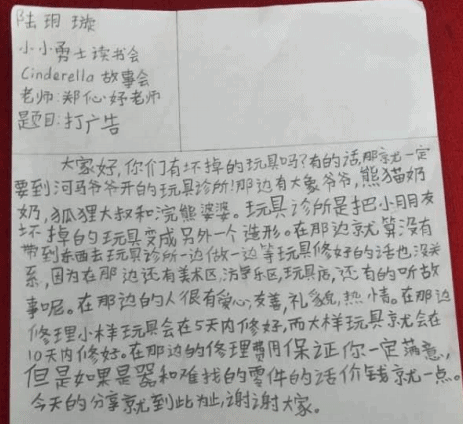 陆玥璇
小小勇士读书会
Cinderella 故事会
老师:郑伈妤老师
题目:打广告
大家好,你们有坏掉的玩具吗?有的话,那就一定
要到河马爷爷开的玩具诊所!那边有大象爷爷,熊猫奶
奶,狐狸大叔和浣熊婆婆。玩具诊所是把小朋友
坏掉的玩具变成另外一个造形。在那边就算没有
带到东西去玩具诊所一边做一边等玩具修好的话也没关
系,因为在那边还有美术区,音乐区,玩具店,还有的听故
事呢。在那边的人很有爱心,友善,礼貌,热情。在那边
修理小样玩具会在5天内修好,而大样玩具就会在
10天内修好。在那边的修理费用保证你一定满意,
但是如果是器和难找的零件的话价钱就一点。
今天的分享就到此为止,谢谢大家。